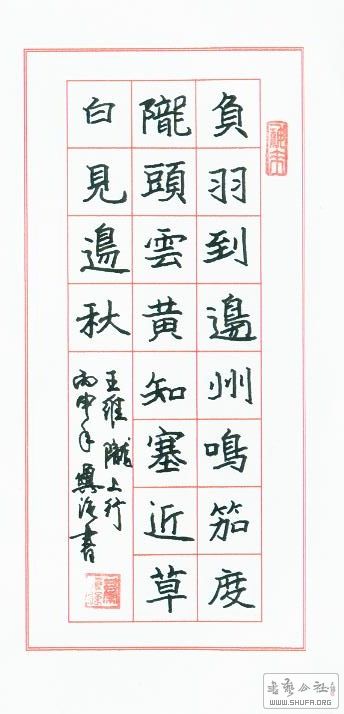 負羽到邊州鳴笳度
隴頭雲黄知塞近草
白見邊秋
王維隴上行
丙申年
書
WWW.SHUFA.ORG